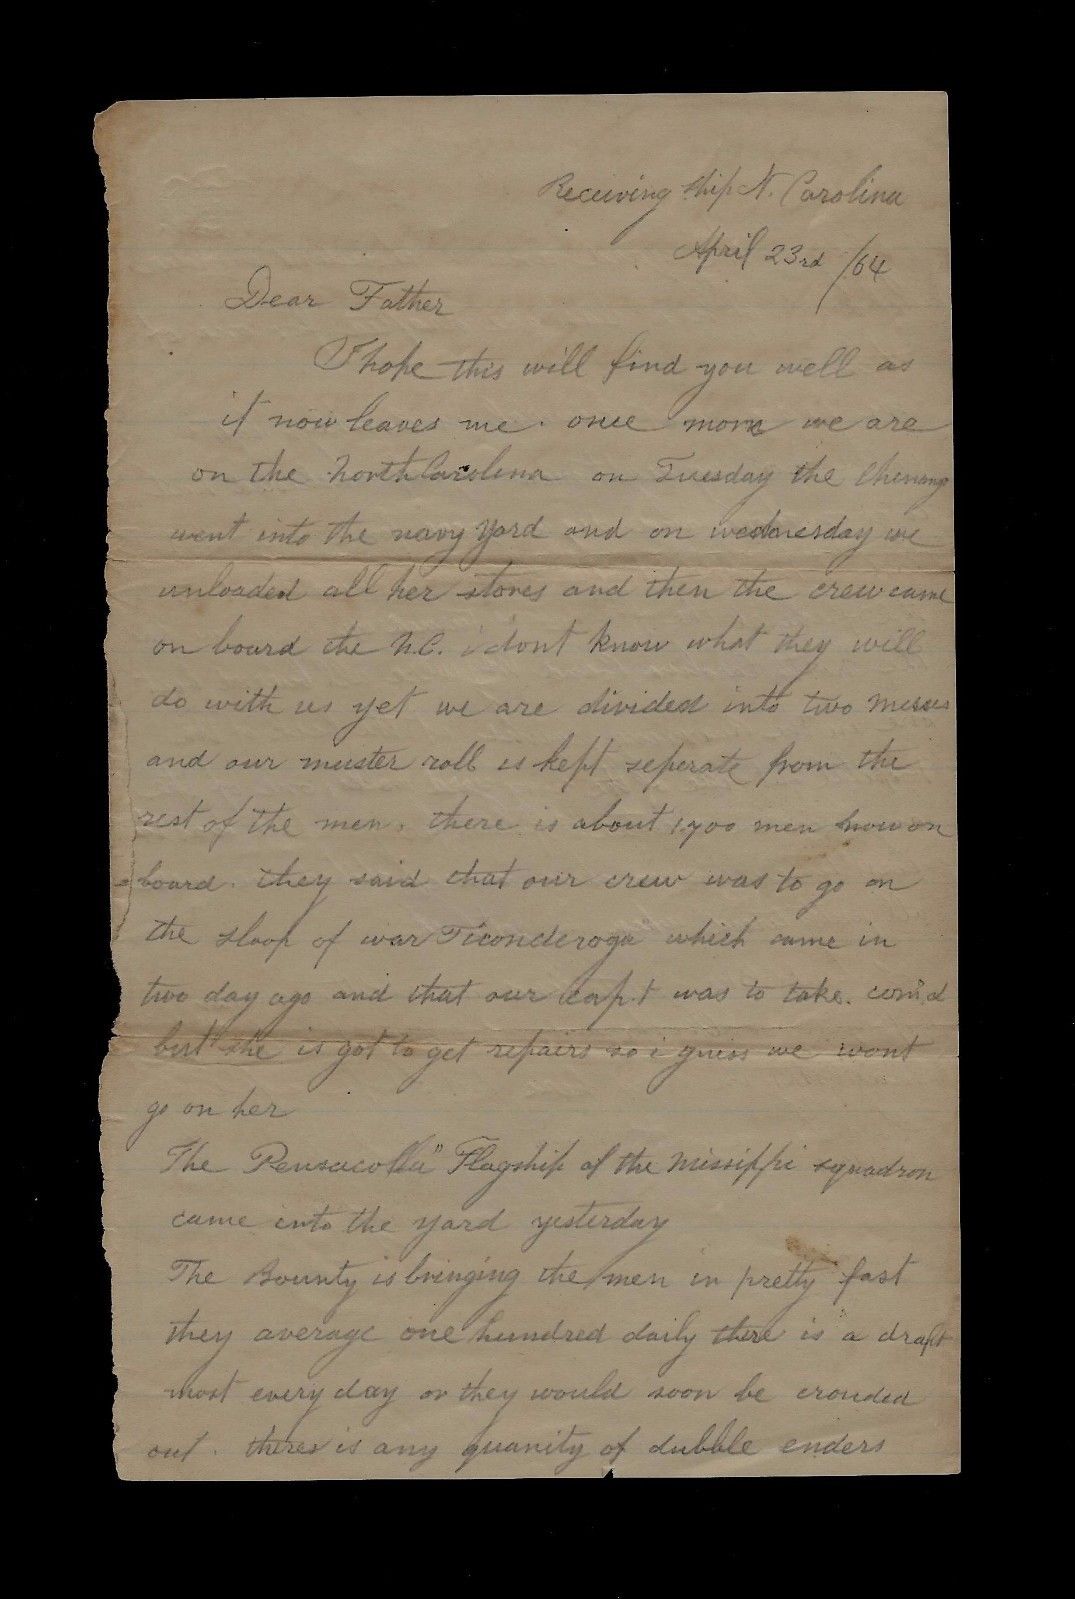 Receiving Ship N. Carolina
April 23rd /64
Dear Father
I hope this will find you well as
it now leaves me. once more we are
on the North Carolina on Tuesday the Chenango
went into the navy Yard and on wednesday we
unloaded all her stores and then the crew came
on board the N.C. i dont know what they will
do with us yet we are divided into two messes
and our muster roll is kept seperate from the
rest of the men. there is about 1700 men now on
board. they said that our crew was to go on
the sloop of war Ticonderoga" which came in
two day ago and that our capt was to take. com'd
but she is got to get repairs so i guess we wont
go on her
The Pensacolla" Flagship of the Missippi squadron
came into the yard yesterday
The Bounty is bringing the men in pretty fast
they average one hundred daily there is a draft
most every day or they would soon be crouded
out. theres is any quanity of dubble enders